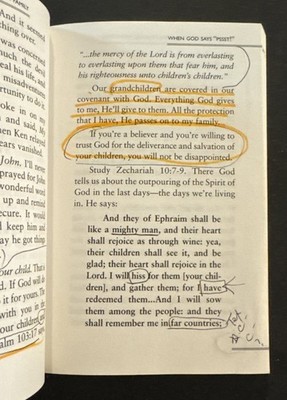 FAMILY
And it seemed
thing over.
was concerned
much the life
misadventure
ortunity to do it.
oke in on my
and said, My
hen Ken relayed
ears vanished.
John. I'll never
prayed for John,
wonderful word
up and remind
ecure. It would
d keep him and
ay he got things
our child. That
e. If God will do
it for yours. The
with you in the
children and
alm 103:17 says,
WHEN GOD SAYS "PSSST!"
"...the mercy of the Lord is from everlasting
to everlasting upon them that fear him, and
his righteousness unto children's children."
Our grandchildren are covered in our
covenant with God. Everything God gives
to me, He'll give to them. All the protection
that I have, He passes on to my family.
If you're a believer and you're willing to
trust God for the deliverance and salvation of
your children, you will not be disappointed.
Study Zechariah 10:7-9. There God
tells us about the outpouring of the Spirit of
God in the last days—the days we're living
in. He says:
And they of Ephraim shall be
like a mighty man, and their heart
shall rejoice as through wine: yea,
their children shall see it, and be
glad; their heart shall rejoice in the
Lord. I will hiss for them [your chil-
dren], and gather them; for I have
redeemed them...And I will sow
them among the people: and they
shall remember me in far countries;